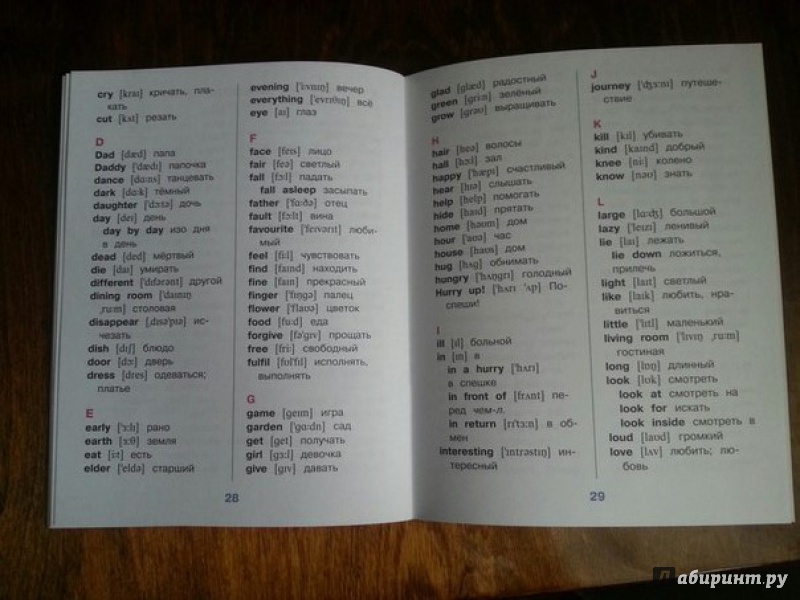 cry [kraɪ] кричать, пла-
кать
cut [kʌt] резать
D
Dad [dæd] папа
Daddy ['dædɪ] папочка
dance [dɑ:ns] танцевать
dark [dɑ:k] тёмный
daughter ['dɔ:tə] дочь
day [deɪ] день
day by day изо дня
в день
dead [ded] мёртвый
die [daɪ] умирать
different ['dɪfərənt] другой
dining room ['daɪnɪŋ
,ru:m] столовая
disappear [,dɪsə'pɪə] ис-
чезать
dish [dɪʃ] блюдо
door [dɔ:] дверь
dress [dres] одеваться;
платье
E
early ['ɜ:lɪ] рано
earth [ɜ:θ] земля
eat [i:t] есть
elder ['eldə] старший
evening ['i:vnɪŋ] вечер
everything ['evrɪθɪŋ] всё
eye [aɪ] глаз
F
face [feɪs] лицо
fair [feə] светлый
fall [fɔ:l] падать
fall asleep засыпать
father ['fɑ:ðə] отец
fault [fɔ:lt] вина
favourite ['feɪvərɪt] люби-
мый
feel [fi:l] чувствовать
find [faɪnd] находить
fine [faɪn] прекрасный
finger ['fɪŋgə] палец
flower ['flaʊə] цветок
food [fu:d] еда
forgive [fə'gɪv] прощать
free [fri:] свободный
fulfil [fʊl'fɪl] исполнять,
выполнять
G
game [geɪm] игра
garden ['gɑ:dn] сад
get [get] получать
girl [gɜ:l] девочка
give [gɪv] давать
28
glad [glæd] радостный
green [gri:n] зелёный
grow [grəʊ] выращивать
H
hair [heə] волосы
hall [hɔ:l] зал
happy ['hæpɪ] счастливый
hear [hɪə] слышать
help [help] помогать
hide [haɪd] прятать
home [həʊm] дом
hour ['aʊə] час
house [haʊs] дом
hug [hʌg] обнимать
hungry ['hʌŋgrɪ] голодный
Hurry up! ['hʌrɪ 'ʌp] По-
спеши!
I
ill [ɪl] больной
in [ɪn] в
in a hurry ['hʌrɪ]
в спешке
in front of [frʌnt] пе-
ред чем-л.
in return [rɪ'tɜ:n] в об-
мен
interesting ['ɪntrəstɪŋ] ин-
тересный
J
journey ['ʤɜ:nɪ] путеше-
ствие
K
kill [kɪl] убивать
kind [kaɪnd] добрый
knee [ni:] колено
know [nəʊ] знать
L
large [lɑ:ʤ] большой
lazy ['leɪzɪ] ленивый
lie [laɪ] лежать
lie down ложиться,
прилечь
light [laɪt] светлый
like [laɪk] любить, нра-
виться
little ['lɪtl] маленький
living room ['lɪvɪŋ ,ru:m]
гостиная
long [lɒŋ] длинный
look [lʊk] смотреть
look at смотреть на
look for искать
look inside смотреть в
loud [laʊd] громкий
love [lʌv] любить; лю-
бовь
29
Лабиринт.ру